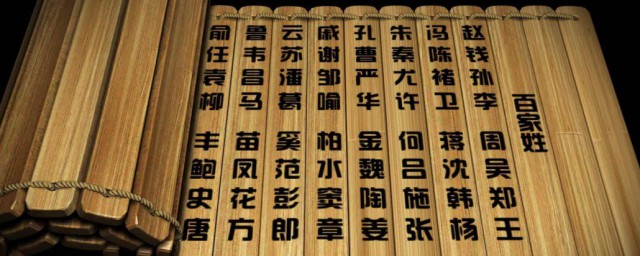 百家姓
赵钱孙李 周吴郑王
冯陈褚卫 蒋沈韩杨
朱秦尤许 何吕施张
孔曹严华 金魏陶姜
戚谢邹喻 柏水窦章
云苏潘葛 奚范彭郎
鲁韦昌马 苗凤花方
俞任袁柳 丰鲍史唐